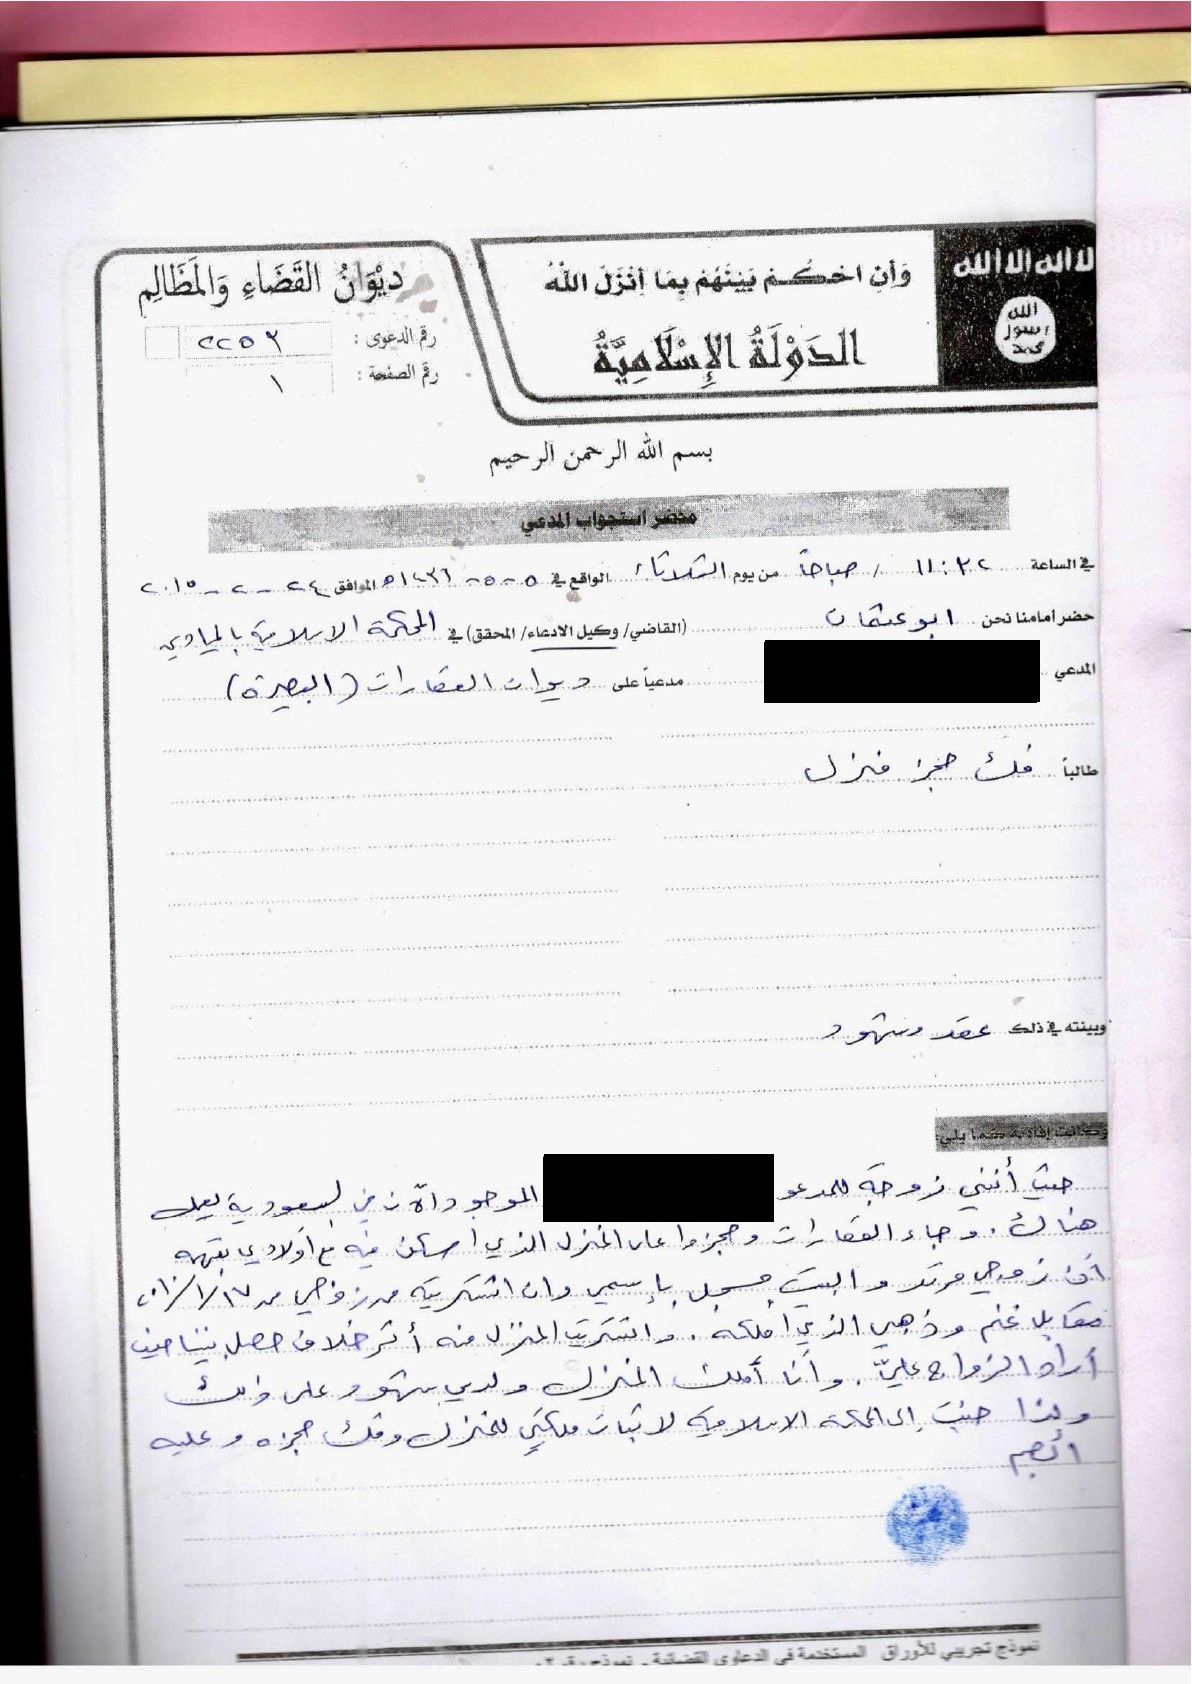 لا اله الا الله
الله
رسول
محمد
وَأَنِ احْكُمْ بَيْنَهُمْ بِمَا أَنْزَلَ اللَّهُ
الدَوْلَةُ الإِسْلَامِيَّةُ
دِيْوَانُ القَضَاءِ وَالمَظَالِمِ
رقم الدعوى : ٢٢٥٣
رقم الصفحة : ١
بسم الله الرحمن الرحيم
محضر استجواب المدعي
في الساعة ١١:٣٢ / صباحاً من يوم الثلاثاء الواقع في ٥-٥-١٤٣٦ه الموافق ٢٤-٢-٢٠١٥
حضر أمامنا نحن ابو عثمان (القاضي/ وكيل الادعاء/ المحقق) في المحكمة الاسلامية بالميادين
المدعي مدعياً على ديوان العقارات (البصيرة)
طالباً فك حجز منزل
وبينته في ذلك عقد وشهود
وكانت إفادته كما يلي:
حيث أنني زوجة للمدعو الموجود الآن في السعودية يعمل
هناك. وجاء العقارات وحجزوا على المنزل الذي اسكن فيه مع أولادي بتهمة
أن زوجي مرتد والبيت مسجل بإسمي وانا اشتريته من زوجي من
مقابل غنم وذهبي الذي أملكه. واشتريت المنزل منه أثر خلاف حصل بيننا حين
أراد الزواج عليّ. وأنا أملك المنزل ولدي شهود على ذلك
ولذا جئت إلى المحكمة الاسلامية لاثبات ملكيتي للمنزل وفك حجزه وعليه
أبصم
نموذج تجريبي للأوراق المستخدمة في الدعاوى القضائية - نموذج رقم ٢٠